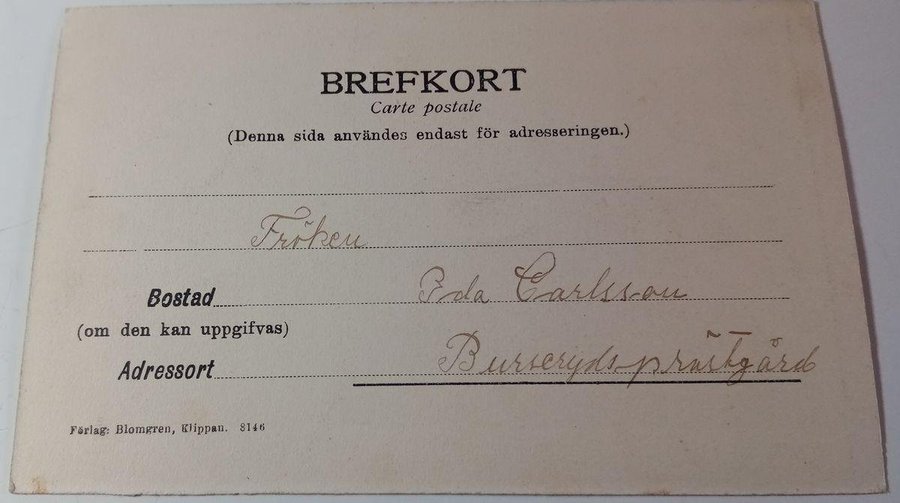 BREFKORT
Carte postale
(Denna sida användes endast för adresseringen.)
Fröken
Bostad Ida Carlsson
(om den kan uppgifvas)
Adressort Burserydsprästgård
Förlag: Blomgren, Klippan. 8146